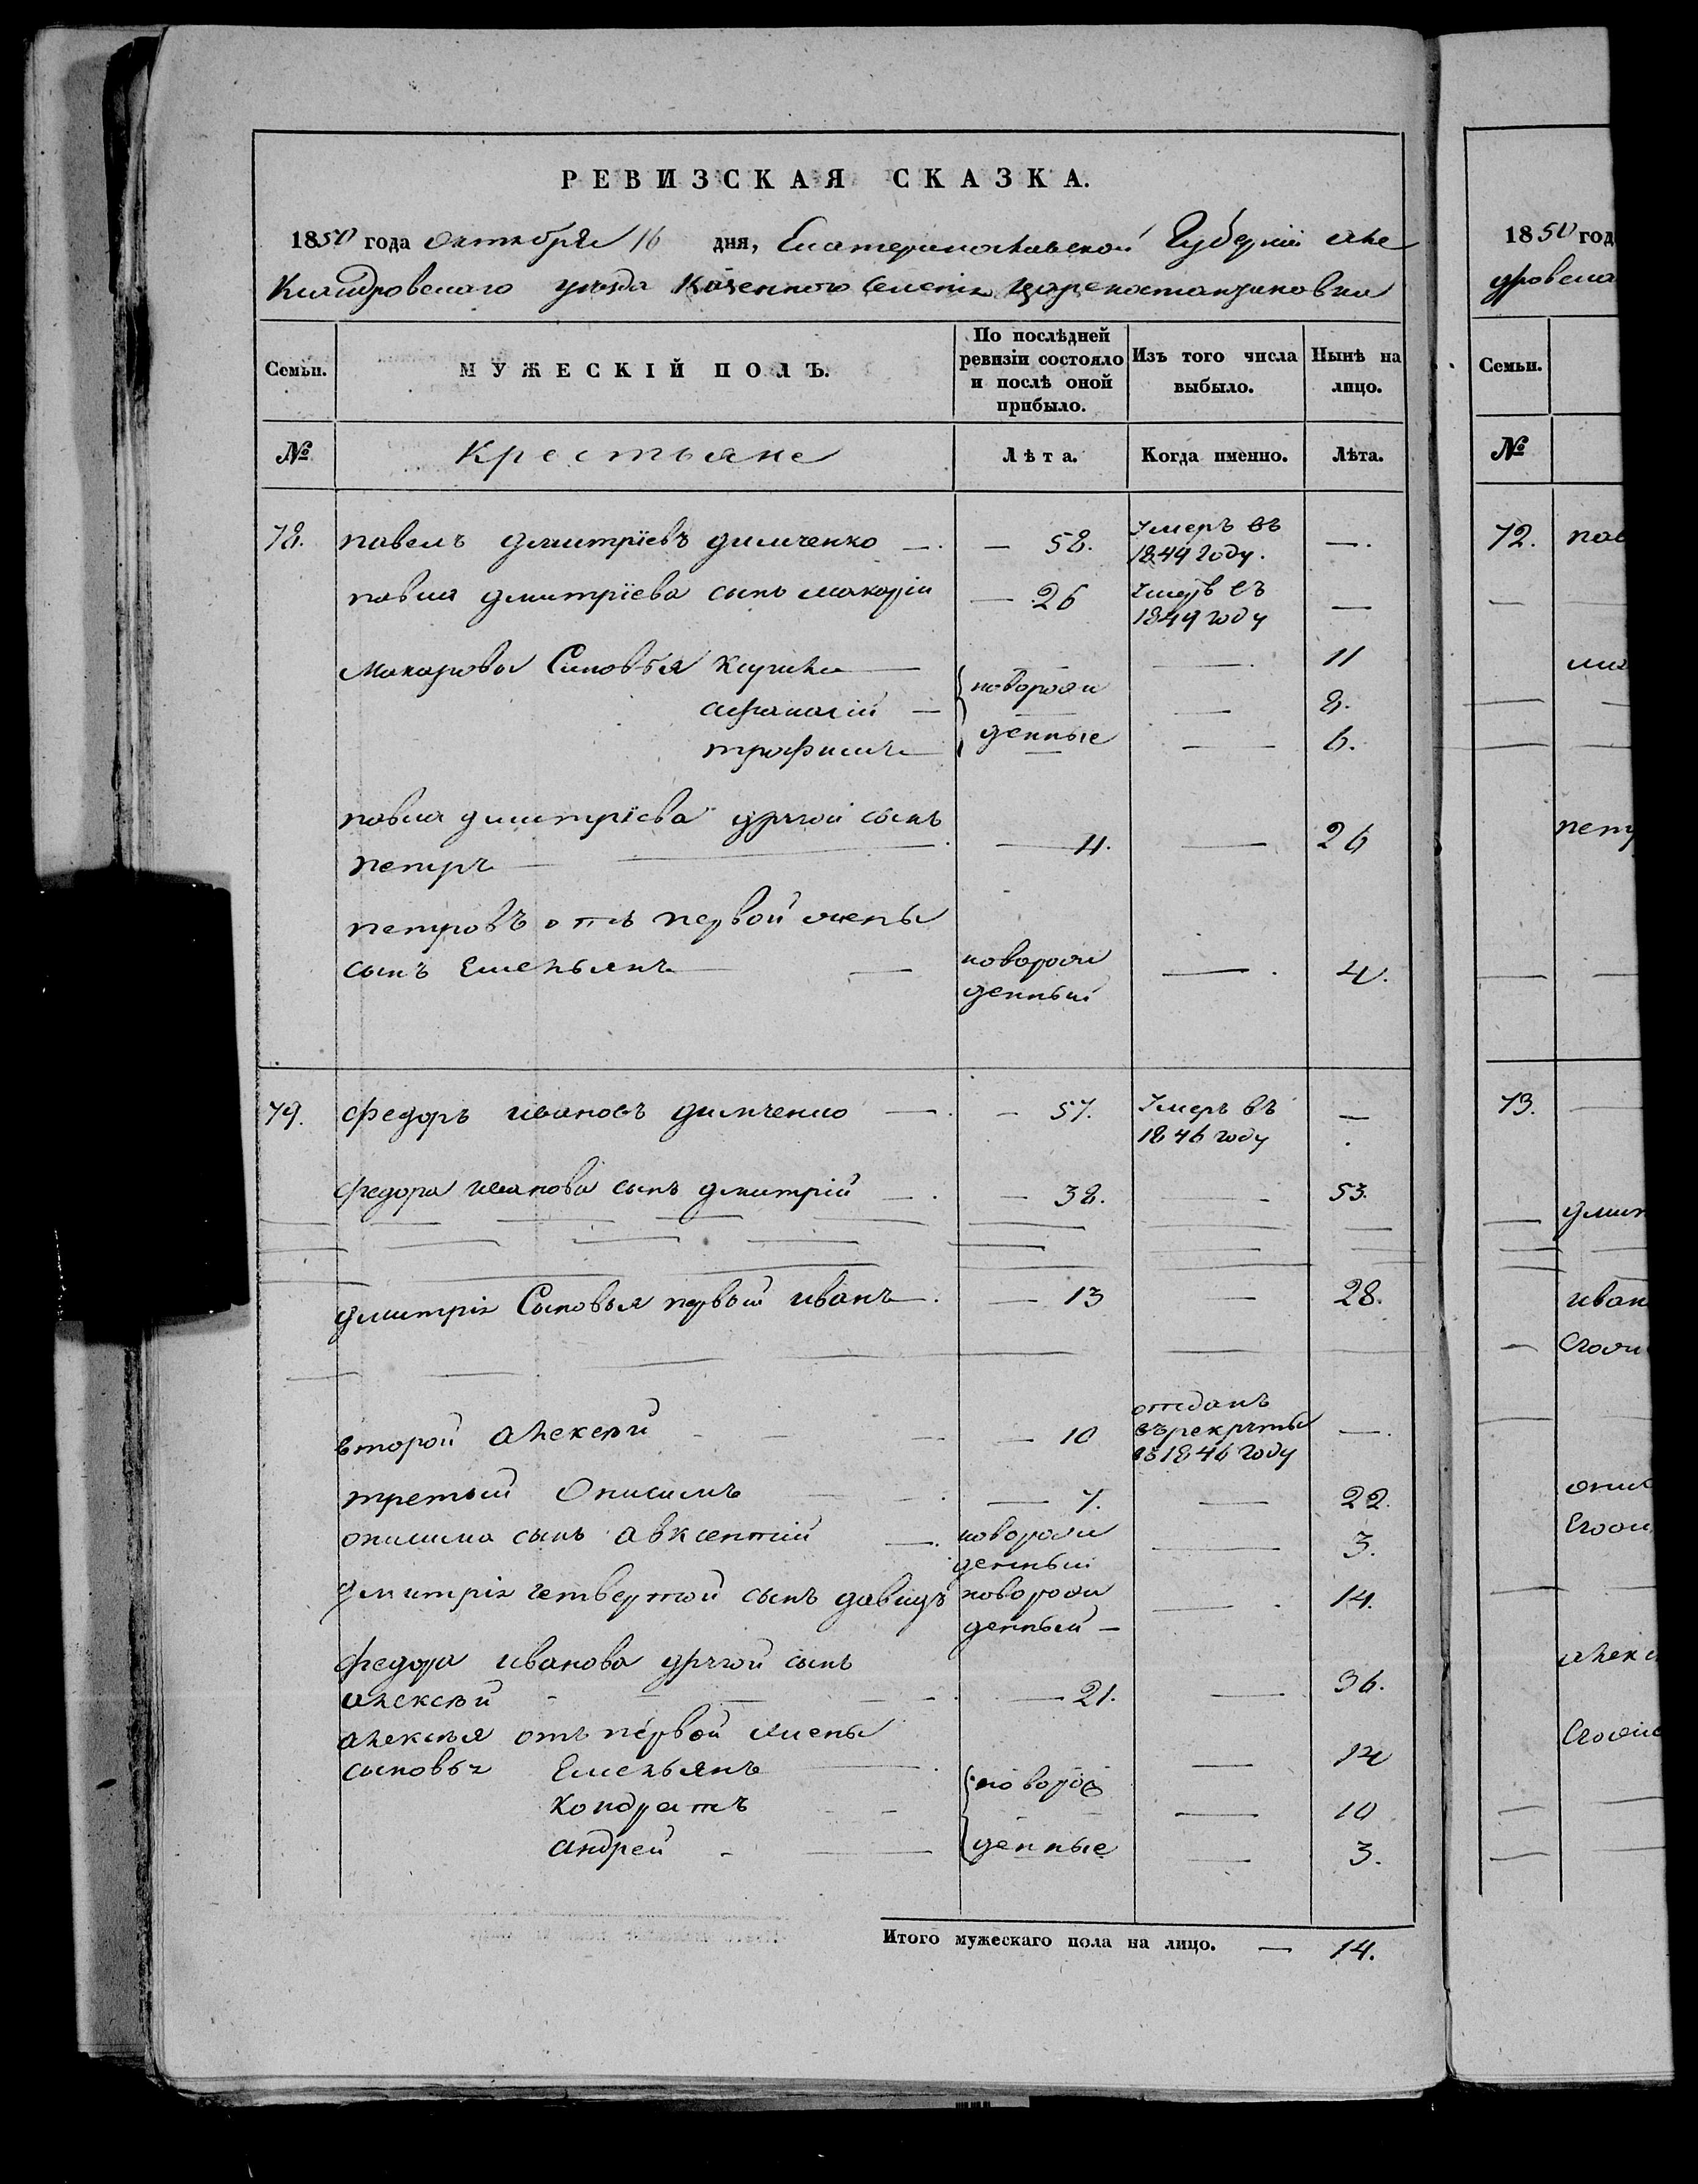 РЕВИЗСКАЯ СКАЗКА.
1850 года Октября 16 дня, Екатеринославской Губерніи Але
Ксандровскаго уезда Казенного Селенія Цареконстантиновки
Семьи. МУЖЕСКІЙ ПОЛЪ. По послѣдней ревизіи состояло и послѣ оной прибыло. Изъ того числа выбыло. Нынѣ на лицо.
№ Крестьяне Лѣта. Когда именно. Лѣта.
78. павелъ дмитріевъ димченко — 58. Умеръ въ 1849 году. —
павла дмитріева сынъ макарій — 26 Умеръ въ 1849 году —
Макаровы Сыновья — 11
афанасій — новорож — 8.
трофимъ — денные — 6.
павла дмитріева другой сынъ
петръ — 11. — 26
петровъ отъ первой жены
сынъ Емельянъ — новорож денный — 4.
79. федоръ ивановъ димченко — 57. Умеръ въ 1846 году —
федора иванова сынъ дмитрій — 38. — 53.
дмитрія Сыновья первый иванъ — 13 — 28.
второй алексей — 10 отданъ въ рекруты въ 1846 году —
третьій Онисимъ — 7. — 22.
онисима сынъ авксентій — новорож денный — 3.
дмитрія четвертой сынъ давидъ новорож денный — 14.
федора иванова другой сынъ
алексѣй — 21. — 36.
алексѣя отъ первой жены
сыновья Емельянъ — 12
Кондратъ — новорож — 10
андрей — денные — 3.
Итого мужескаго пола на лицо. — 14.
1850 год
дровска
Семьи.
№
72. пав
мак
петр
73.
дмит
иван
Егож
онис
Егож
алекс